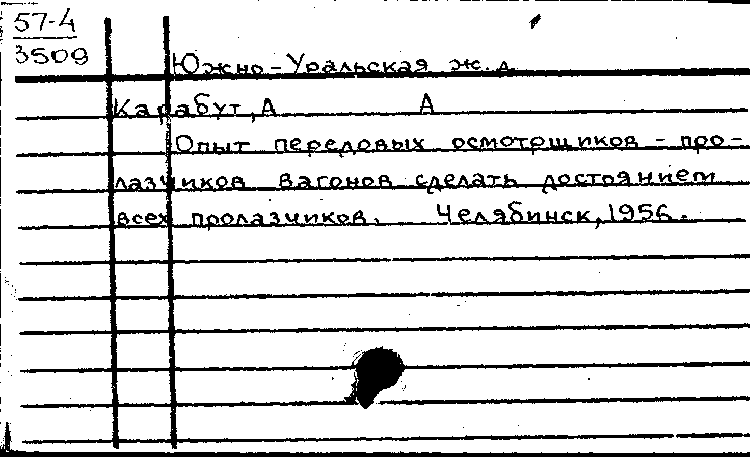 57-4
3509
Южно-Уральская ж.д.
Карабут, А А
Опыт передовых осмотрщиков - про-
лазчиков вагонов сделать достоянием
всех пролазчиков. Челябинск, 1956.